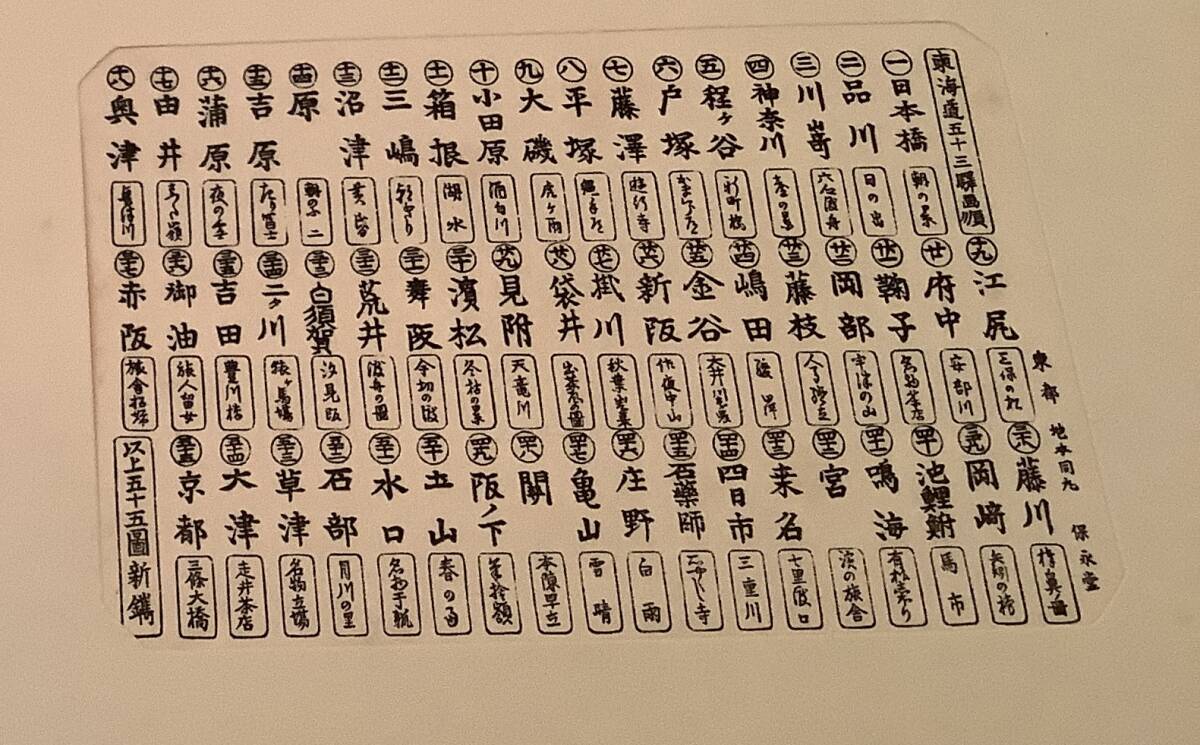 東海道五十三驛画順
一 日本橋
朝の景
二 品川
日の出
三 川嵜
六合渡舟
四 神奈川
臺の景
五 程ヶ谷
新町橋
六 戸塚
七 藤澤
遊行寺
八 平塚
縄手道
九 大磯
虎ヶ雨
十 小田原
酒匂川
十一 箱根
湖水
十二 三嶋
朝きり
十三 沼津
黄昏
十四 原
朝のふ二
十五 吉原
左り富士
十六 蒲原
夜の雪
十七 由井
さった嶺
十八 奥津
興津川
十九 江尻
三保の松
廿 府中
安部川
廿一 鞠子
名物茶店
廿二 岡部
宇津の山
廿三 藤枝
人馬継立
廿四 嶋田
駿岸
廿五 金谷
大井川遠岸
廿六 新阪
佐夜中山
廿七 掛川
秋葉山遠景
廿八 袋井
出茶屋の圖
廿九 見附
天竜川
三十 濱松
冬枯の景
三十一 舞阪
今切の渡
三十二 荒井
渡舟の圖
三十三 白須賀
汐見阪
三十四 二タ川
猿ヶ馬場
三十五 吉田
豊川橋
三十六 御油
旅人留女
三十七 赤阪
旅舎招婦
三十八 藤川
棒鼻圖
三十九 岡﨑
矢矧の橋
四十 池鯉鮒
馬市
四十一 鳴海
有松壳り
四十二 宮
濱の旅舎
四十三 桑名
七里渡口
四十四 四日市
三重川
四十五 石藥師
石やくし寺
四十六 庄野
白雨
四十七 亀山
雪晴
四十八 關
本陳早立
四十九 阪ノ下
筆捨嶺
五十 土山
春の雨
五十一 水口
名物干瓢
五十二 石部
目川の里
五十三 草津
名物立場
五十四 大津
走井茶店
五十五 京都
三條大橋
以上五十五圖新鐫
東都 地本問丸 保永堂